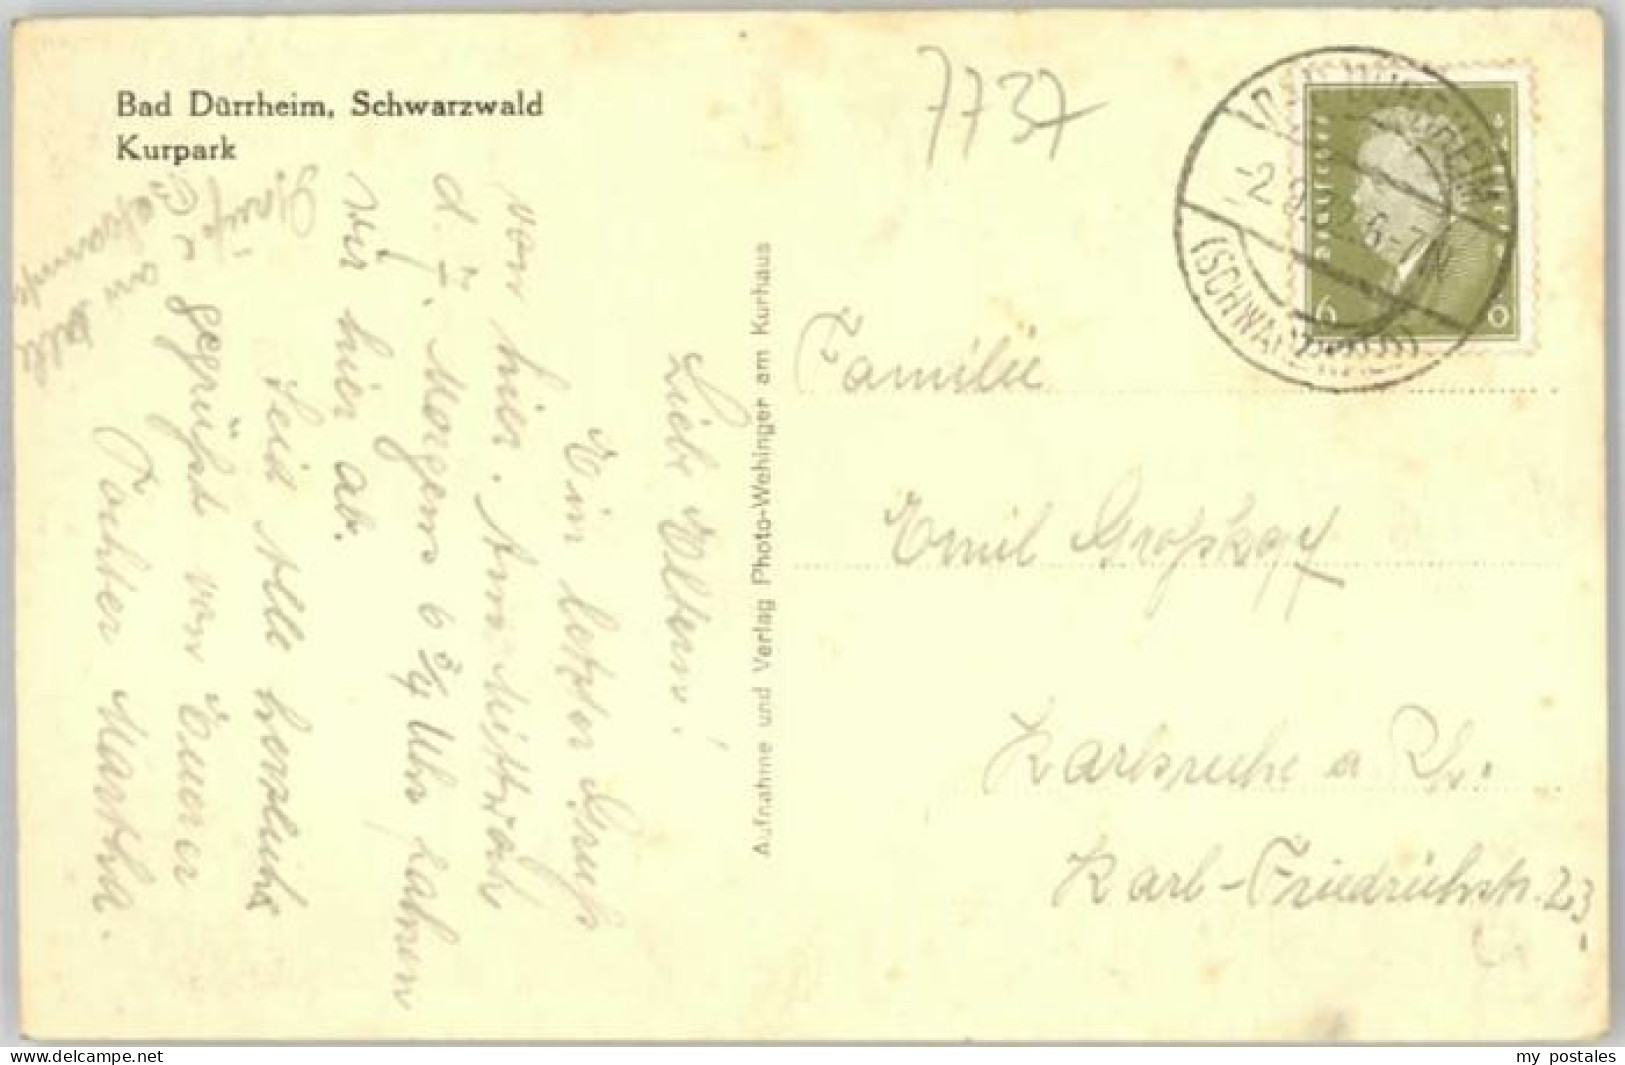 Bad Dürrheim, Schwarzwald
Kurpark
7737
BAD DÜRRHEIM
-2. 8. 6-7 N
(SCHWARZWALD)
DEUTSCHES REICH
6
Liebe Eltern!
Ein letzter Gruß
von hier. Am Mittwoch
d. Morgens 6 3/4 Uhr fahren
wir hier ab.
Seid Alle herzlichst
gegrüßt von Euerer
Tochter Martha.
Grüße an alle
Bekannte
Aufnahme und Verlag Photo-Wehinger am Kurhaus
Familie
Emil Großkopf
Karlsruhe a Rh.
Karl-Friedrichstr. 23
my postales